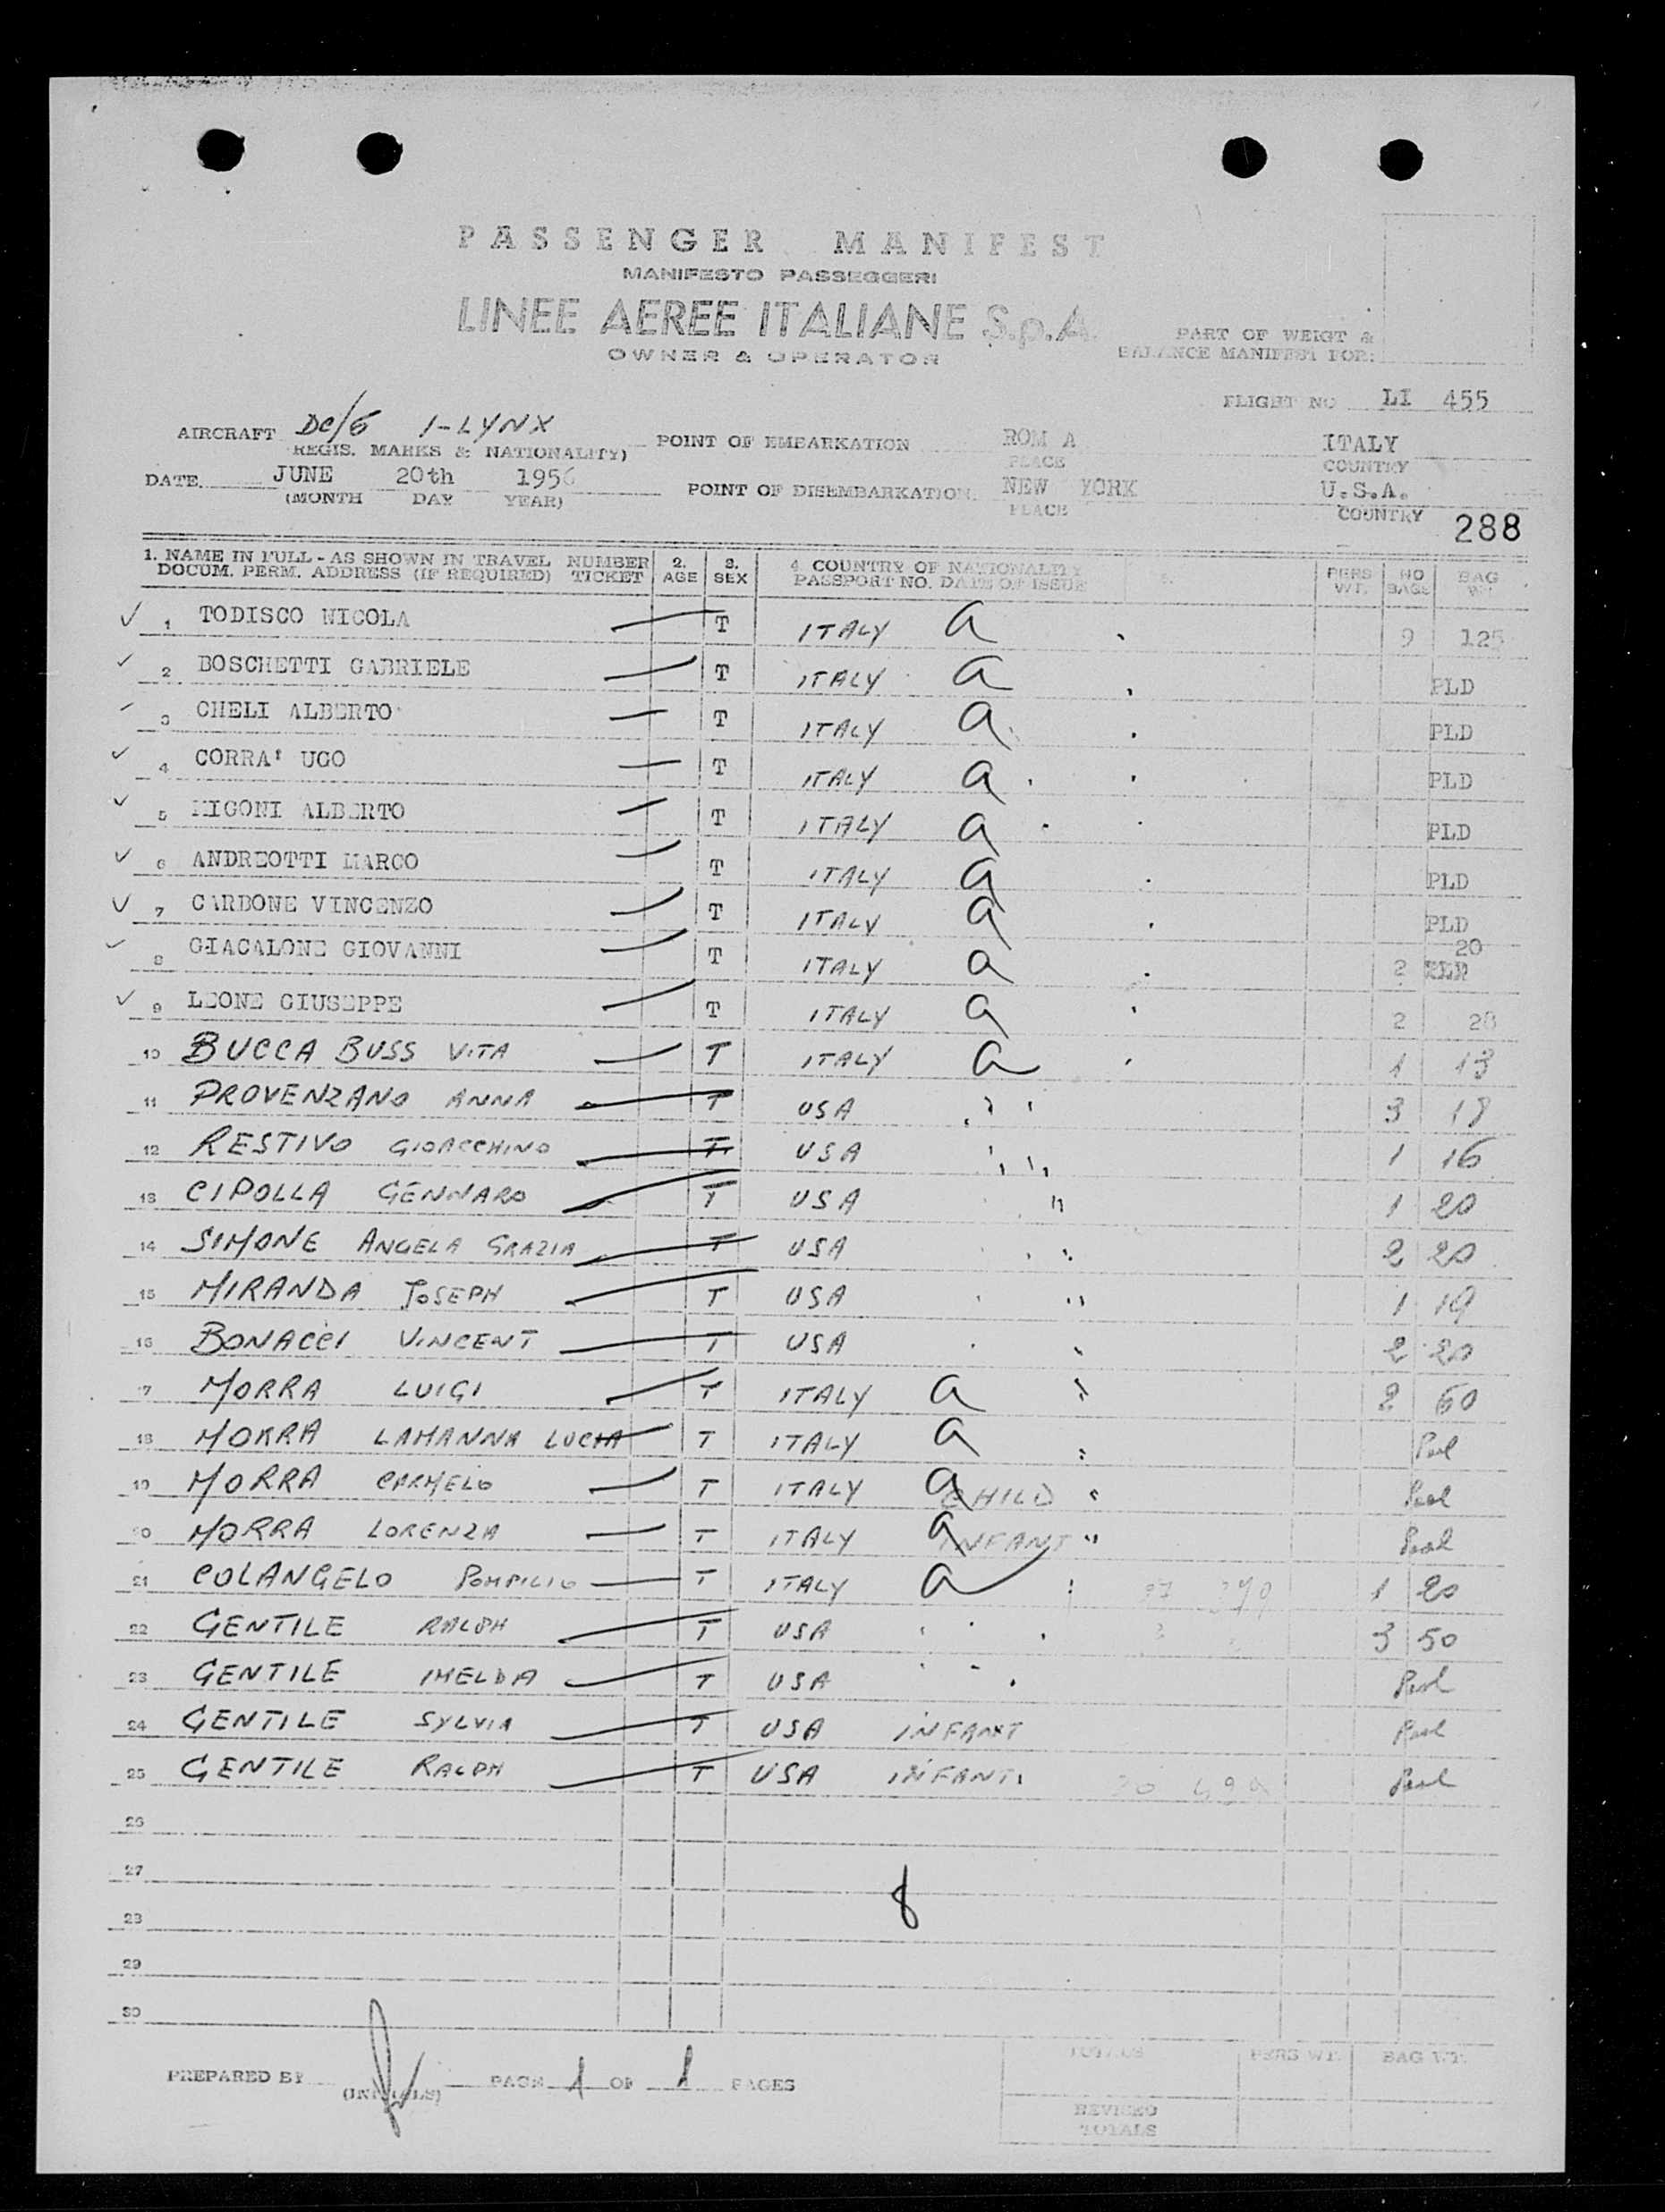 PASSENGER MANIFEST
MANIFESTO PASSEGGERI
LINEE AEREE ITALIANE S.p.A.
OWNER & OPERATOR
PART OF WEIGT &
BALANCE MANIFEST FOR:
FLIGHT NO LI 455
AIRCRAFT DC/6 I-LYNX POINT OF EMBARKATION ROM A ITALY
REGIS. MARKS & NATIONALITY) PLACE COUNTRY
DATE JUNE 20th 1956 POINT OF DISEMBARKATION NEW YORK U.S.A.
(MONTH DAY YEAR) PLACE COUNTRY 288
1. NAME IN FULL - AS SHOWN IN TRAVEL NUMBER 2. 3. 4. COUNTRY OF NATIONALITY 5. PERS NO BAG
DOCUM. PERM. ADDRESS (IF REQUIRED) TICKET AGE SEX PASSPORT NO. DATE OF ISSUE WT. BAGS WT.
1 TODISCO NICOLA T ITALY a 9 125
2 BOSCHETTI GABRIELE T ITALY a PLD
3 CHELI ALBERTO T ITALY a PLD
4 CORRA' UGO T ITALY a PLD
5 MIGONI ALBERTO T ITALY a PLD
6 ANDREOTTI MARCO T ITALY a PLD
7 CARBONE VINCENZO T ITALY a PLD
8 GIACALONE GIOVANNI T ITALY a 2 20
9 LEONE GIUSEPPE T ITALY a 2 28
10 BUCCA BUSS VITA T ITALY a 1 13
11 PROVENZANO ANNA T USA 3 18
12 RESTIVO GIOACCHINO T USA 1 16
13 CIPOLLA GENNARO T USA 1 20
14 SIMONE ANGELA GRAZIA T USA 2 20
15 MIRANDA JOSEPH T USA 1 19
16 BONACCI VINCENT T USA 2 20
17 MORRA LUIGI T ITALY a 2 60
18 MORRA LAMANNA LUCIA T ITALY a Pool
19 MORRA CARMELO T ITALY a CHILD Pool
20 MORRA LORENZA T ITALY a INFANT Pool
21 COLANGELO POMPILIO T ITALY a 1 20
22 GENTILE RALPH T USA 3 50
23 GENTILE IMELDA T USA Pool
24 GENTILE SYLVIA T USA INFANT Pool
25 GENTILE RALPH T USA INFANT Pool
26
27
8
28
29
30
PREPARED BY (INITIALS) PAGE 1 OF 1 PAGES
TOTALS PERS WT. BAG WT.
REVISED
TOTALS